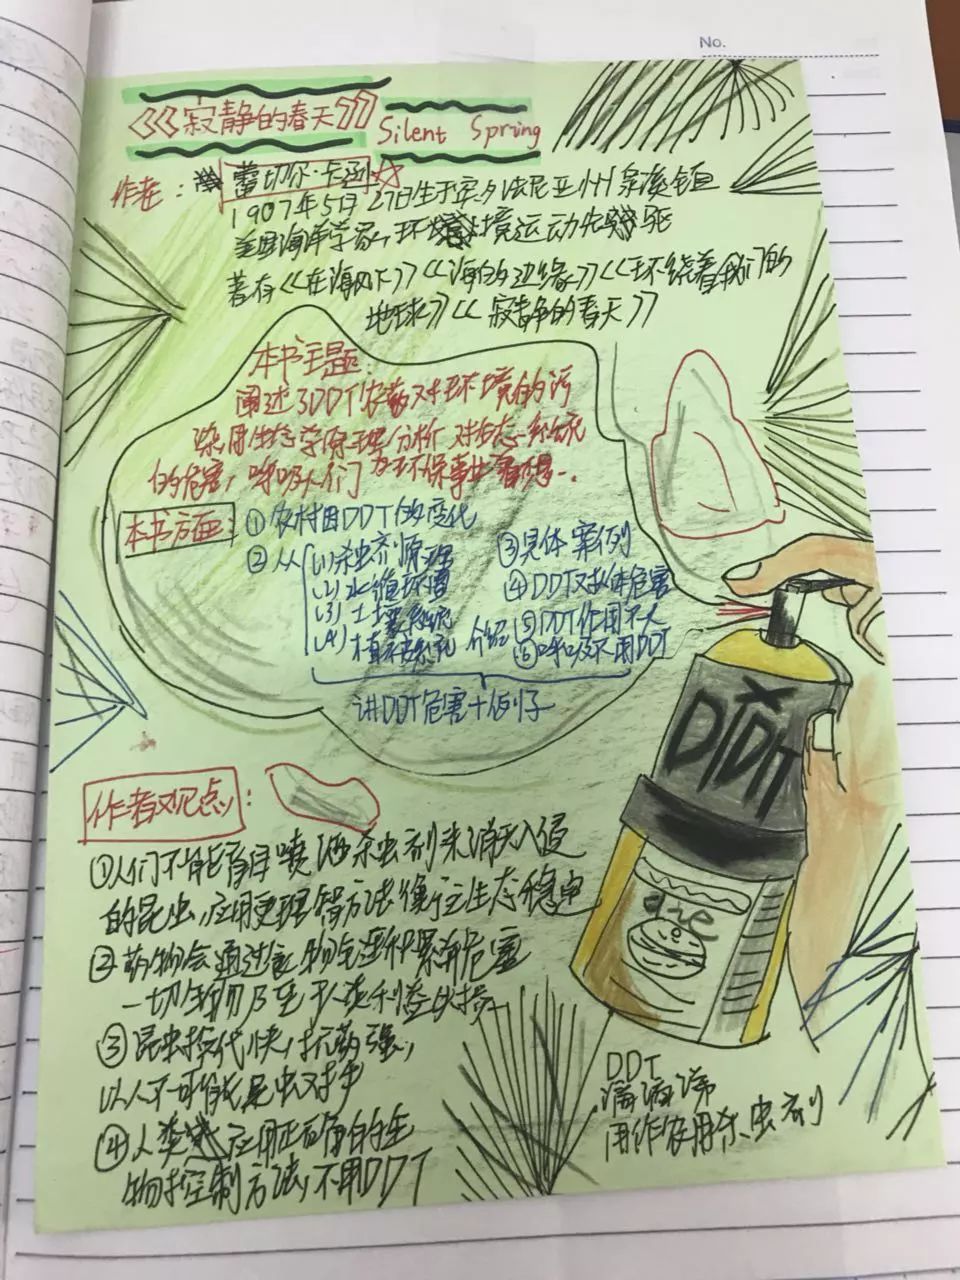 No.
《寂静的春天》 Silent Spring
作者: 蕾切尔·卡逊 ☆
1907年5月27日生于宾夕法尼亚州泉溪镇
美国海洋学家,环境运动先驱
著有《在海风下》《海的边缘》《环绕着我们的
地球》《寂静的春天》
本书主题:
阐述了DDT农药对环境的污
染,用生态学原理分析对生态系统
的危害,呼吸人们为环保事业着想.
本书方面:
①农村因DDT的变化
②从
(1)杀虫剂原理
(2)水循环
(3)土壤系统
(4)植被系统 介绍
③具体案例
④DDT对人体危害
⑤DDT作用不大
⑥呼吸不用DDT
讲DDT危害+例子
作者观点:
①人们不能盲目喷洒杀虫剂来消灭入侵
的昆虫,应用更理智方法衡定生态稳定
②药物会通过食物链累积危害
一切生物乃至于人类利益伏损
③昆虫换代快,抗药强,
以人不可能是昆虫对手
④人类应用正确的生
物控制方法,不用DDT
DDT
DDT
滴滴涕
用作农用杀虫剂